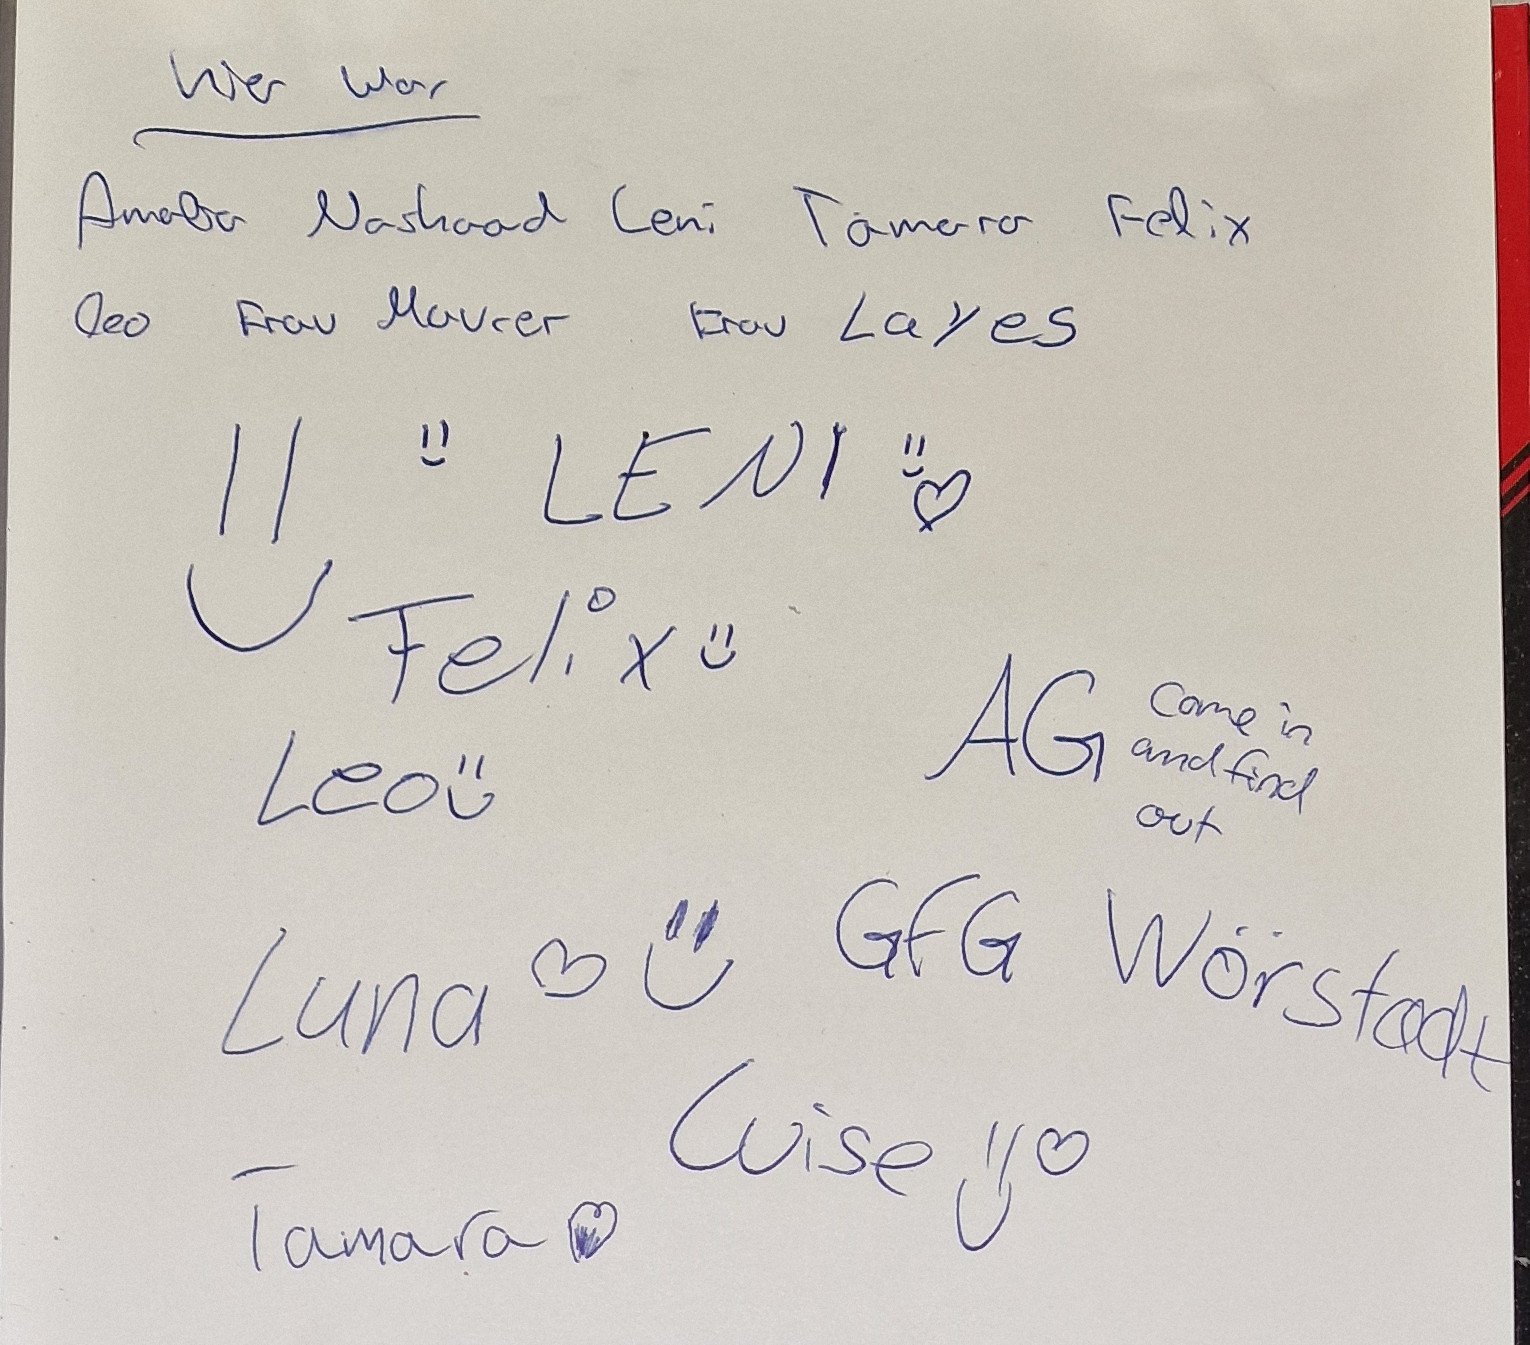 Hier war
Nashaad Leni Tamara Felix
Leo Frau Maurer Frau Layes
LENI
Felix
Leo
AG come in
and find
out
Luna
GFG Wörstadt
Luise
Tamara